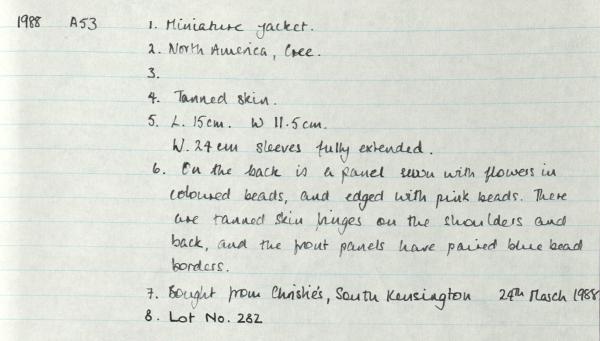 1988 A53 1. Miniature jacket.
2. North America, Cree.
3.
4. Tanned skin.
5. L. 15cm. W 11.5cm.
W. 24cm sleeves fully extended.
6. On the back is a panel sewn with flowers in
coloured beads, and edged with pink beads. There
are tanned skin fringes on the shoulders and
back, and the front panels have paired blue bead
borders.
7. Bought from Christie's, South Kensington 24th March 1988
8. Lot No. 282